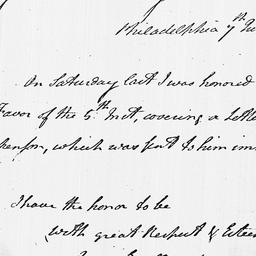 Philadelphia 7th
On Saturday last I was honored
Favor of the 5th Inst, covering a Lette
henson, which was sent to him imm
I have the honor to be
with great Respect & Esteem